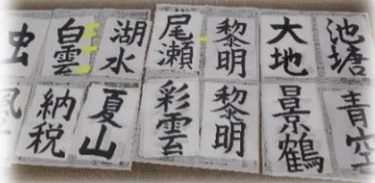 虫
白雲
湖水
尾瀬
黎明
大地
池塘
納税
夏山
彩雲
黎明
景鶴
青空